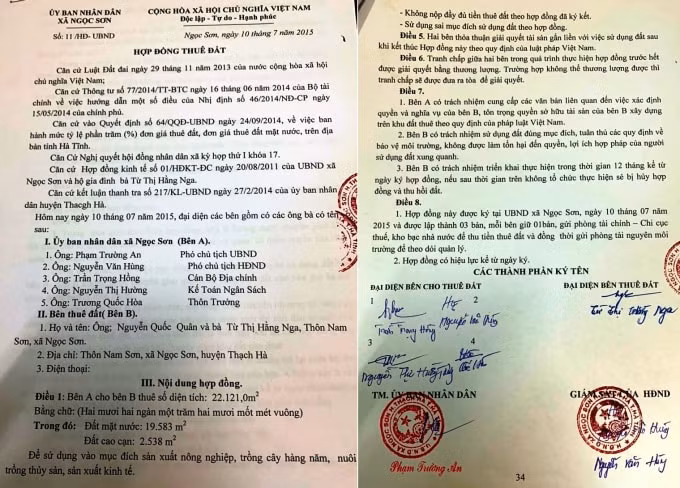 ỦY BAN NHÂN DÂN
XÃ NGỌC SƠN
Số: 11/HĐ- UBND
CỘNG HÒA XÃ HỘI CHỦ NGHĨA VIỆT NAM
Độc lập - Tự do - Hạnh phúc
Ngọc Sơn, ngày 10 tháng 7 năm 2015
HỢP ĐỒNG THUÊ ĐẤT
Căn cứ Luật Đất đai ngày 29 tháng 11 năm 2013 của nước cộng hòa xã hội
chủ nghĩa Việt Nam;
Căn cứ Thông tư số 77/2014/TT-BTC ngày 16 tháng 06 năm 2014 của Bộ tài
chính về việc hướng dẫn một số điều của Nhị định số 46/2014/NĐ-CP ngày
15/05/2014 của chính phủ.
Căn cứ vào Quyết định số 64/QQĐ-UBND ngày 24/09/2014, về việc ban
hành mức tỷ lệ phần trăm (%) đơn giá thuê đất, đơn giá thuê đất mặt nước, trên địa
bàn tỉnh Hà Tĩnh.
Căn Cứ Nghị quyết hội đồng nhân dân xã kỳ họp thứ I khóa 17.
Căn cứ Hợp đồng kinh tế số 01/HĐKT-ĐC ngày 20/08/2011 của UBND xã
Ngọc Sơn và hộ gia đình bà Từ Thị Hằng Nga.
Căn cứ kết luận thanh tra số 217/KL-UBND ngày 27/2/2014 của ủy ban nhân
dân huyện Thacgh Hà.
Hôm nay ngày 10 tháng 07 năm 2015, đại diện các bên gồm có các ông bà có tên
sau:
I. Ủy ban nhân dân xã Ngọc Sơn (Bên A).
1. Ông: Phạm Trường An Phó chủ tịch UBND
2. Ông: Nguyễn Văn Hùng Phó chủ tịch HĐND
3. Ông: Trần Trọng Hồng Cán Bộ Địa chính
4. Ông: Nguyễn Thị Hường Kế Toán Ngân Sách
5. Ông: Trương Quốc Hòa Thôn Trường
II. Bên thuê đất( Bên B).
1. Họ và tên: Ông; Nguyễn Quốc Quân và bà Từ Thị Hằng Nga, Thôn Nam
Sơn, xã Ngọc Sơn.
2. Địa chỉ: Thôn Nam Sơn, xã Ngọc Sơn, huyện Thạch Hà
3. Điện thoại:
III. Nội dung hợp đồng.
Điều 1: Bên A cho bên B thuê số diện tích: 22.121,0m²
Bằng chữ: (Hai mươi hai ngàn một trăm hai mươi mốt mét vuông)
Trong đó: Đất mặt nước: 19.583 m²
Đất cao cạn: 2.538 m²
Để sử dụng vào mục đích sản xuất nông nghiệp, trồng cây hàng năm, nuôi
trồng thủy sản, sản xuất kinh tế.
- Không nộp đầy đủ tiền thuê đất theo hợp đồng đã ký kết.
- Sử dụng sai mục đích sử dụng đất theo hợp đồng.
Điều 5. Hai bên thỏa thuận giải quyết tài sản gắn liền với việc sử dụng đất sau
khi kết thúc Hợp đồng này theo quy định của luật pháp Việt Nam.
Điều 6. Tranh chấp giữa hai bên trong quá trình thực hiện hợp đồng trước hết
được giải quyết bằng thương lượng. Trường hợp không thể thương lượng được thì
tranh chấp sẽ được đưa ra tòa để giải quyết.
Điều 7.
1. Bên A có trách nhiệm cung cấp các văn bản liên quan đến việc xác định
quyền và nghĩa vụ của bên B, tôn trọng quyền sở hữu tài sản của bên B xây dựng
trên khu đất thuê theo quy định của pháp luật Việt Nam.
2. Bên B có trách nhiệm sử dụng đất đúng mục đích, tuân thủ các quy định về
bảo vệ môi trường, không được làm tổn hại đến quyền, lợi ích hợp pháp của người
sử dụng đất xung quanh.
3. Bên B có trách nhiệm triển khai thực hiện trong thời gian 12 tháng kể từ
ngày ký hợp đồng, nếu sau thời gian trên không tổ chức thực hiện sẽ bị hủy hợp
đồng và thu hồi đất.
Điều 8.
1. Hợp đồng này được ký tại UBND xã Ngọc Sơn, ngày 10 tháng 07 năm
2015 và được lập thành 03 bản, mỗi bên giữ 01bản, gửi phòng tài chính – Chi cục
thuế, kho bạc nhà nước để thu tiền thuê đất và đồng thời gửi phòng tài nguyên môi
trường để theo dõi quản lý.
2. Hợp đồng có hiệu lực kể từ ngày ký.
CÁC THÀNH PHẦN KÝ TÊN
ĐẠI DIỆN BÊN CHO THUÊ ĐẤT
ĐẠI DIỆN BÊN THUÊ ĐẤT
1 2
Trần Trọng Hồng Nguyễn Văn Hùng
Từ Thị Hằng Nga
3 4
Nguyễn Thị Hường
TM. ỦY BAN NHÂN DÂN
HĐND
Phạm Trường An
Nguyễn Văn Hùng
34